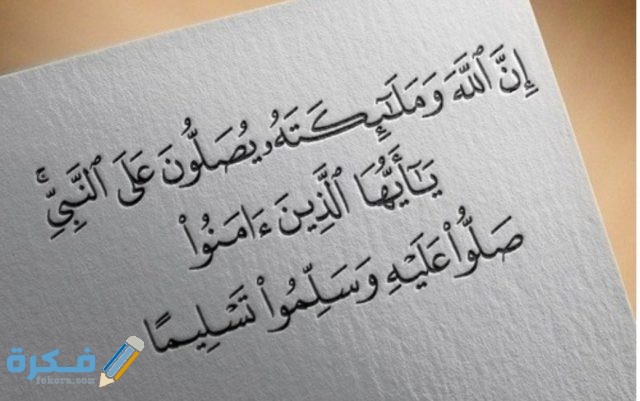 إِنَّ ٱللَّهَ وَمَلَٰٓئِكَتَهُۥ يُصَلُّونَ عَلَى ٱلنَّبِيِّ ۚ
يَٰٓأَيُّهَا ٱلَّذِينَ ءَامَنُوا۟
صَلُّوا۟ عَلَيْهِ وَسَلِّمُوا۟ تَسْلِيمًا
فكرة
fekera.com